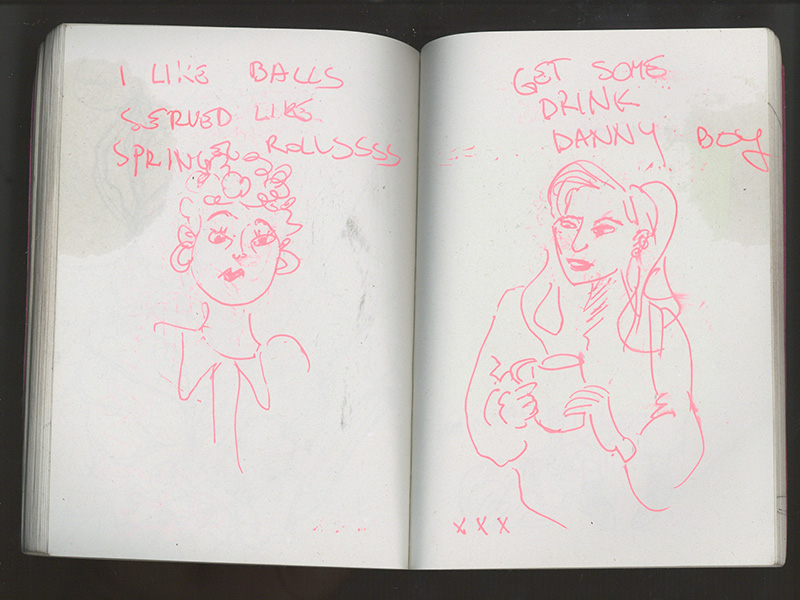 I LIKE BALLS
SERVED LIKE
SPRING ROLLSSSS
GET SOME
DRINK
DANNY BOY
XXX